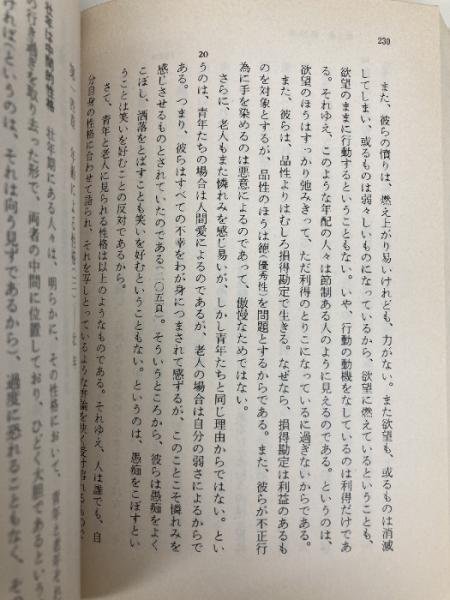 230
また、彼らの憤りは、燃え上がり易いけれども、力がない。また欲望も、或るものは消滅
してしまい、或るものは弱々しいものになっているから、欲望に燃えているということも、
欲望のままに行動するということもない。いや、行動の動機をなしているのは利得だけであ
る。それゆえ、このような年配の人々は節制ある人のように見えるのである。というのは、
欲望のほうはすっかり弛みきって、ただ利得のとりこになっているに過ぎないからである。
また、彼らは、品性よりはむしろ損得勘定で生きる。なぜなら、損得勘定は利益のあるも
のを対象とするが、品性のほうは徳(優秀性)を問題とするからである。また、彼らが不正行
為に手を染めるのは悪意によるのであって、傲慢なためではない。
20
さらに、老人もまた憐れみを感じ易いが、しかし青年たちと同じ理由からではない。とい
うのは、青年たちの場合は人間愛によるのであるが、老人の場合は自分の弱さによるからで
ある。つまり、彼らはすべての不幸をわが身につまされて感ずるが、このことこそ憐れみを
感じさせるものとされていたのである(二〇五頁)。そういうところから、彼らは愚痴をよく
こぼし、洒落をとばすことも笑いを好むということもない。というのは、愚痴をこぼすとい
うことは笑いを好むことの反対であるから。
さて、青年と老人に見られる性格は以上のようなものである。それゆえ、人は誰でも、自
分自身の性格に合わせて語られ、それを写しとっているような言論を快く受け容れるもので
壮年は中間的性格
壮年期にある人々は、明らかに、その性格において、
の行き過ぎを取り去った形で、両者の中間に位置しており、ひ
ければ)というのは、それは向う見ずであるから、過度に恐れることもなく、そ